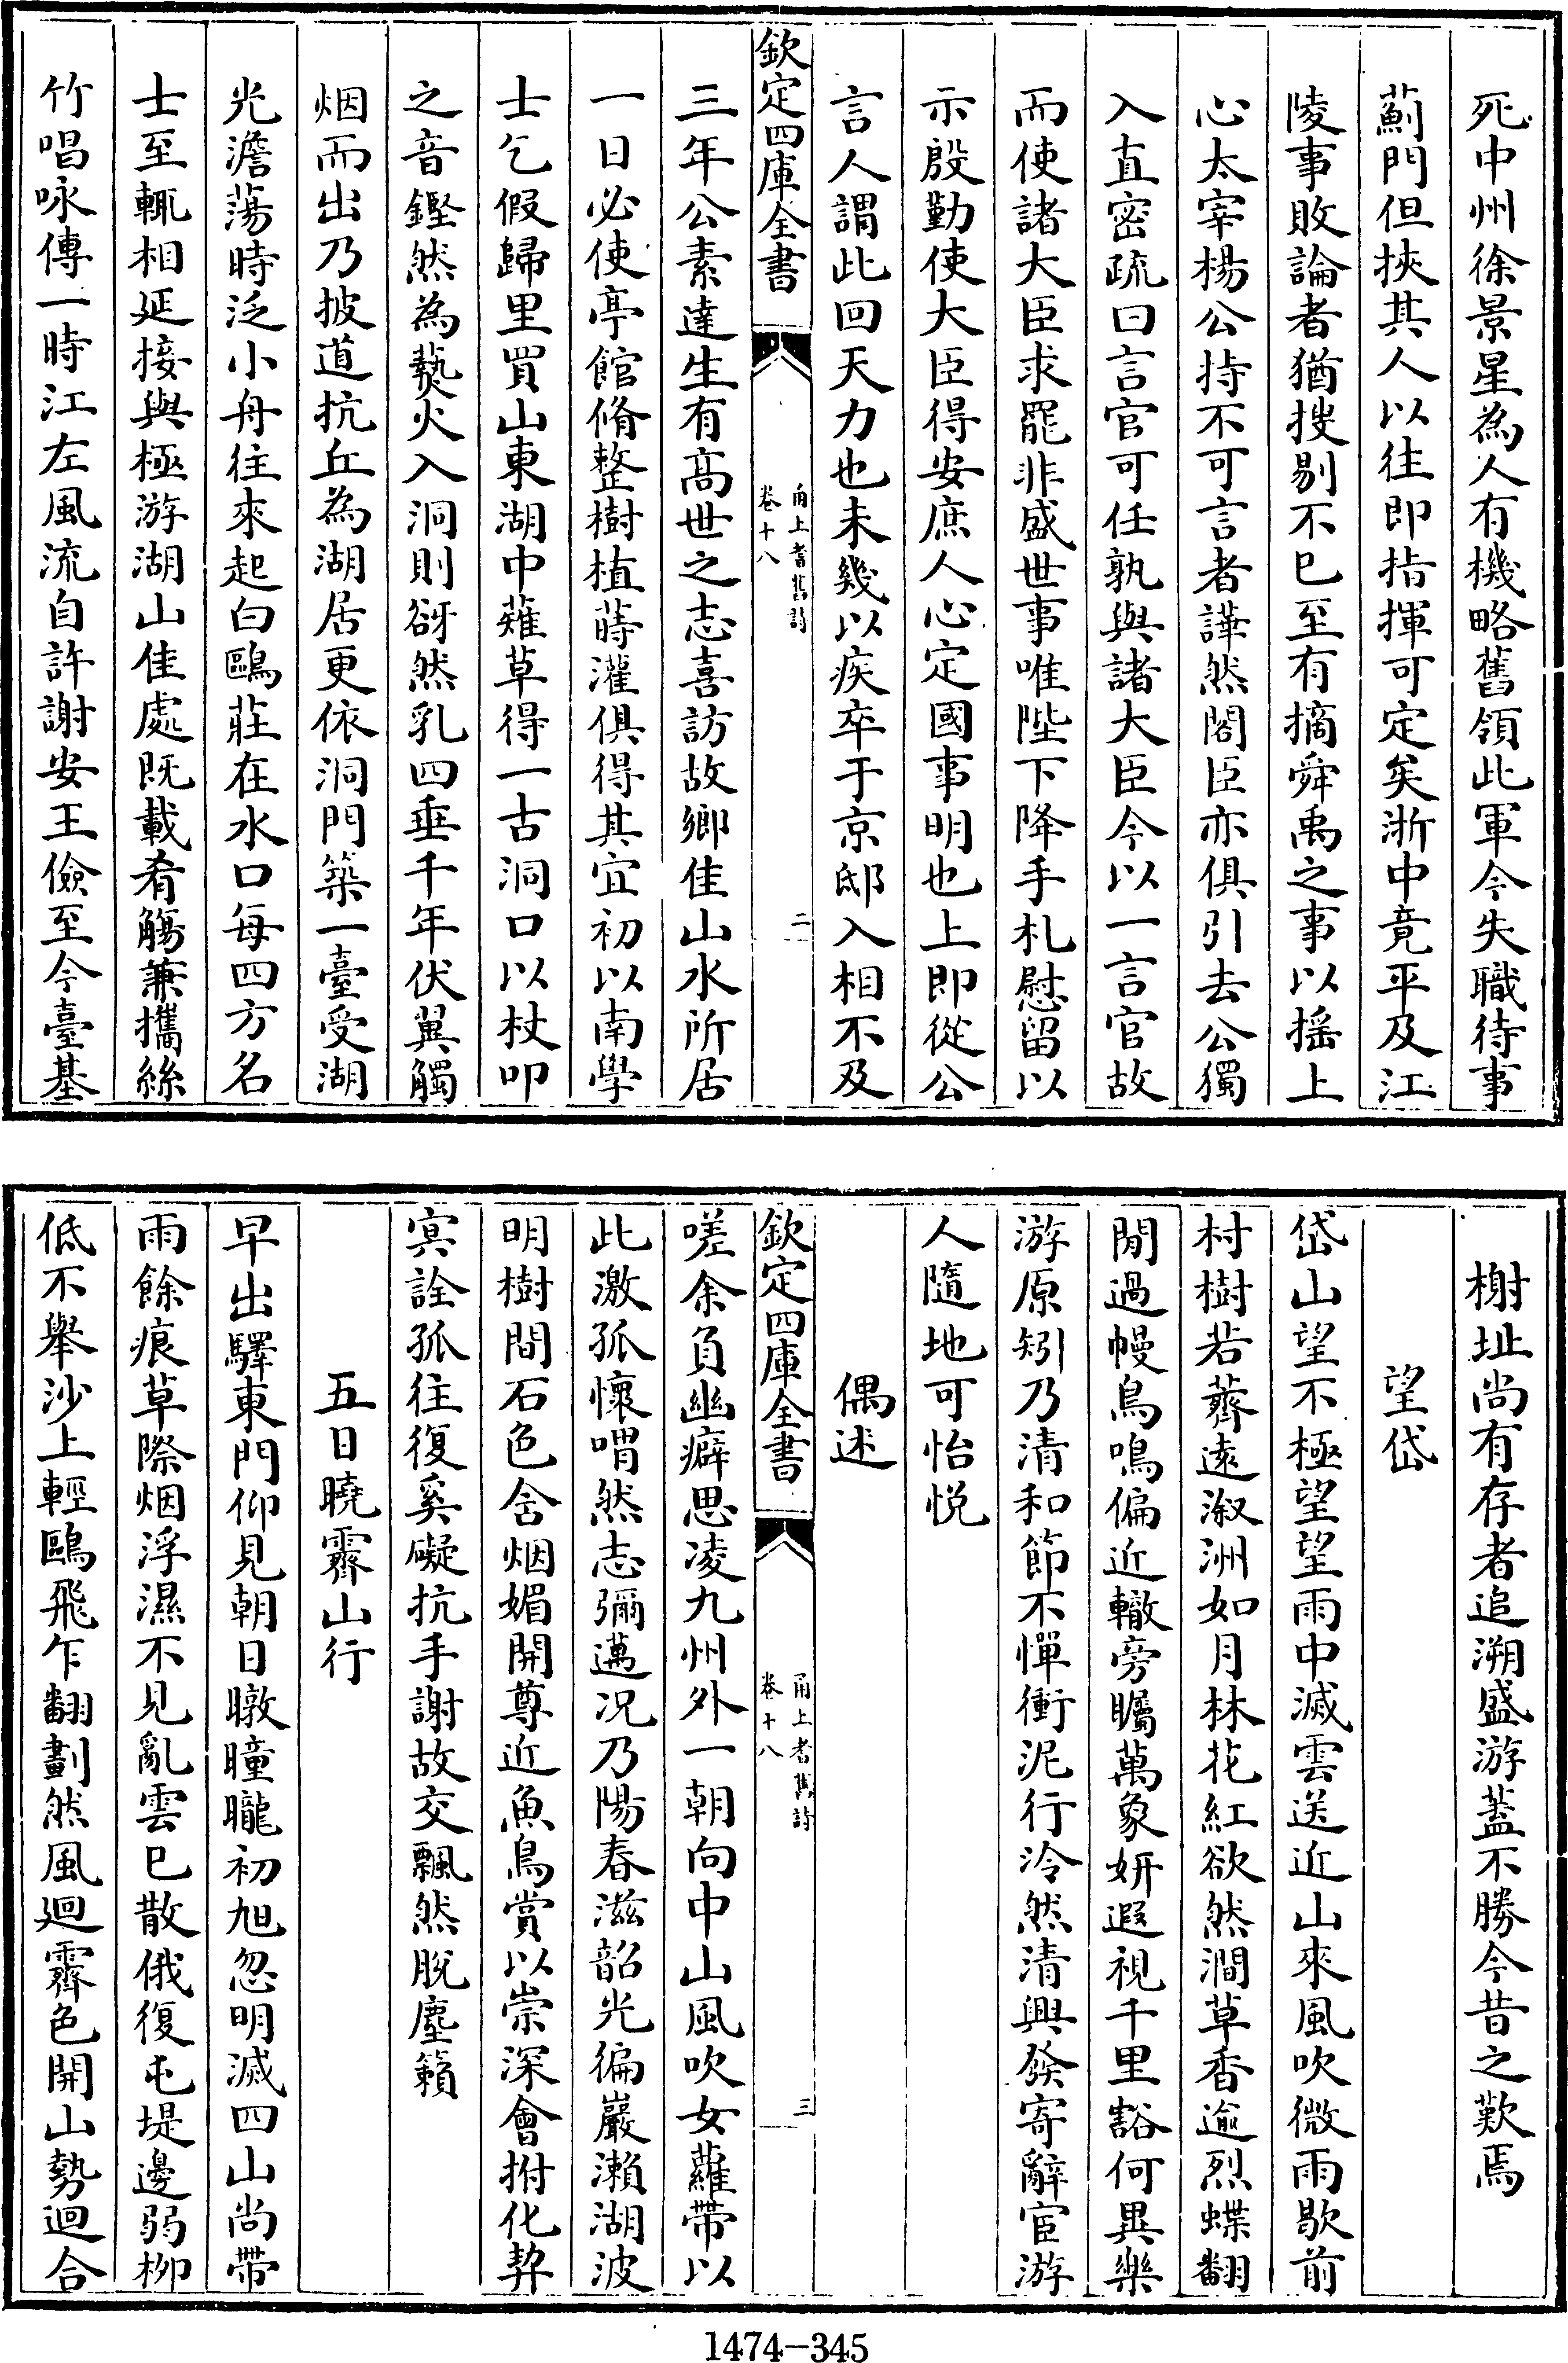 死中州徐景星為人有機略舊領此軍今失職待事
薊門但挾其人以往即指揮可定矣浙中竟平及江
陵事敗論者猶搜剔不已至有摘舜禹之事以揺上
心太宰楊公持不可言者譁然閣臣亦俱引去公獨
入直密疏曰言官可任孰與諸大臣今以一言官故
而使諸大臣求罷非盛世事唯陛下降手札慰留以
示殷勤使大臣得安庶人心定國事明也上即從公
言人謂此回天力也未幾以疾卒于京邸入相不及
欽定四庫全書
甬上耆舊詩
卷十八
二
三年公素達生有髙世之志喜訪故鄉佳山水所居
一日必使亭館脩整樹植蒔灌俱得其宜初以南學
士乞假歸里買山東湖中薙草得一古洞口以杖叩
之音鏗然為爇火入洞則谺然乳四垂千年伏翼觸
烟而出乃披道抗丘為湖居更依洞門築一臺受湖
光澹蕩時泛小舟往來起白鷗莊在水口每四方名
士至輒相延接與極游湖山佳處既載肴觴兼攜絲
竹唱咏傳一時江左風流自許謝安王儉至今臺基
榭址尚有存者追溯盛游葢不勝今昔之歎焉
望岱
岱山望不極望望雨中滅雲送近山來風吹微雨歇前
村樹若薺遠溆洲如月林花紅欲然澗草香逾烈蝶翻
閒過幔鳥鳴偏近轍旁矚萬象妍遐視千里豁何異樂
游原矧乃清和節不憚衝泥行泠然清興發寄辭宦游
人隨地可怡悦
偶述
欽定四庫全書
甬上耆舊詩
卷十八
三
嗟余負幽癖思凌九州外一朝向中山風吹女蘿帶以
此激孤懷喟然志彌邁况乃陽春滋韶光徧巖瀨湖波
明樹間石色含烟媚開尊近魚鳥賞以崇深會拊化契
冥詮孤往復奚礙抗手謝故交飄然脫塵籟
五日曉霽山行
早出驛東門仰見朝日暾曈曨初旭忽明滅四山尚帶
雨餘痕草際烟浮濕不見亂雲已散俄復屯堤邊弱柳
低不舉沙上輕鷗飛乍翻劃然風迴霽色開山勢迴合
1474-345